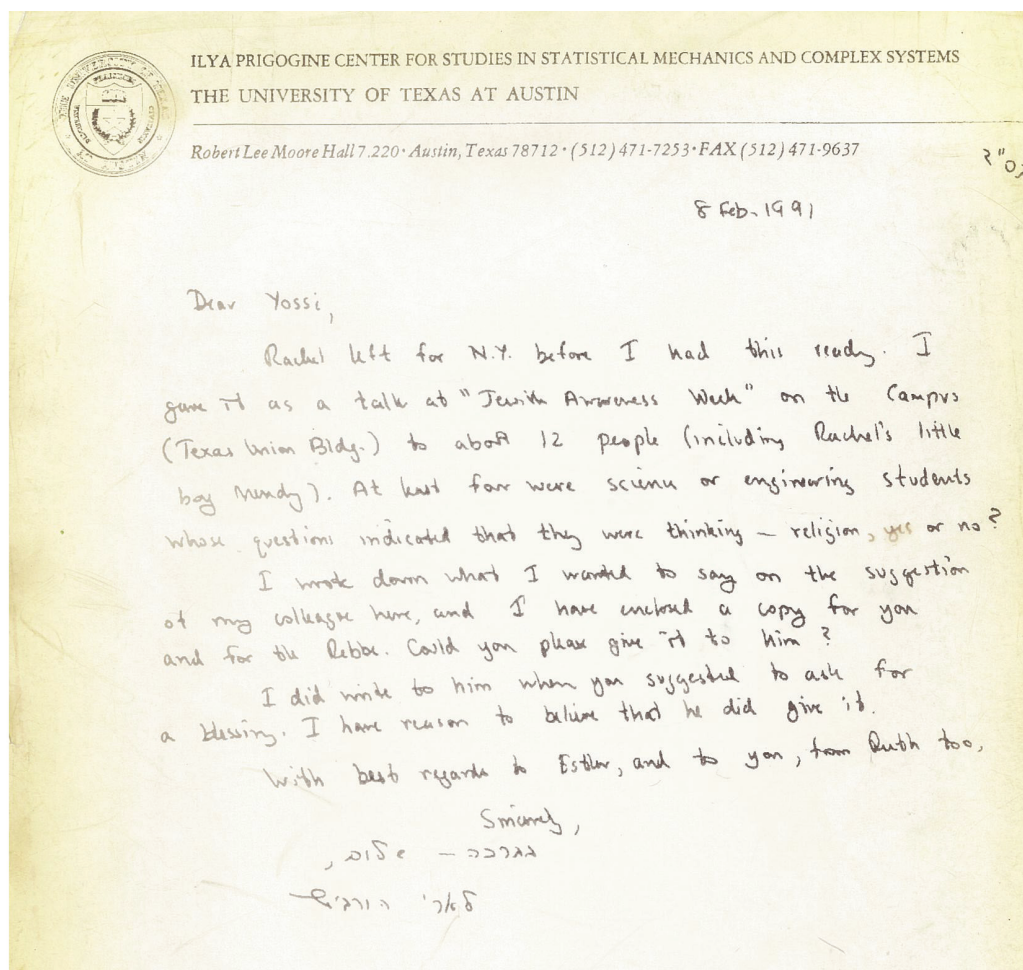 ILYA PRIGOGINE CENTER FOR STUDIES IN STATISTICAL MECHANICS AND COMPLEX SYSTEMS
THE UNIVERSITY OF TEXAS AT AUSTIN
Robert Lee Moore Hall 7.220 · Austin, Texas 78712 · (512) 471-7253 · FAX (512) 471-9637
8 Feb. 1991
Dear Yossi,
Rachel left for N.Y. before I had this ready. I
gave it as a talk at "Jewish Awareness Week" on the Campus
(Texas Union Bldg.) to about 12 people (including Rachel's little
boy Mendy). At least four were science or engineering students
whose questions indicated that they were thinking – religion, yes or no?
I wrote down what I wanted to say on the suggestion
of my colleague here, and I have enclosed a copy for you
and for the Rebbe. Could you please give it to him?
I did write to him when you suggested to ask for
a blessing. I have reason to believe that he did give it.
With best regards to Esther, and to you, from Ruth too,
Sincerely,
בברכה – שלום,
לארי הורביץ